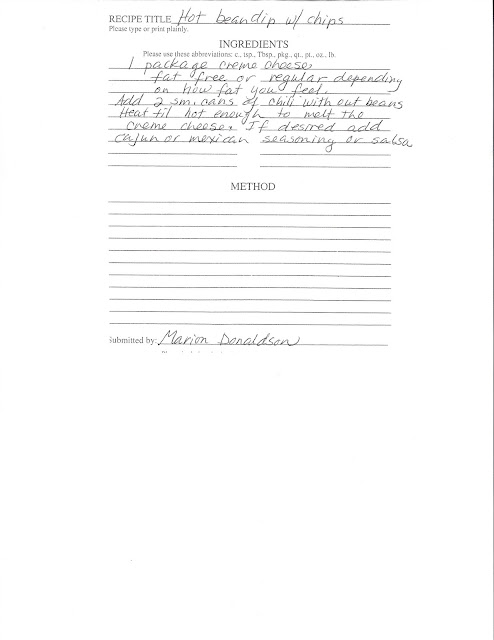 RECIPE TITLE Hot beandip w/ chips
Please type or print plainly.
INGREDIENTS
Please use these abbreviations: c., tsp., Tbsp., pkg., qt., pt., oz., lb.
1 package creme cheese
fat free or regular depending
on how fat you feel.
Add 2 sm. cans of chili with out beans
Heat til hot enough to melt the
creme cheese. If desired add
cajun or mexican seasoning or salsa
METHOD
Submitted by: Marion Donaldson